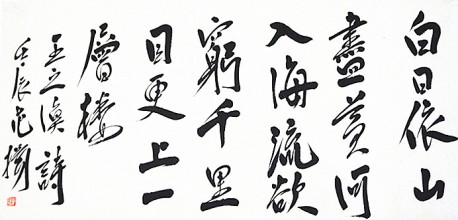 白日依山
盡黄河
入海流欲
窮千里
目更上一
層樓
王之渙詩
壬辰范